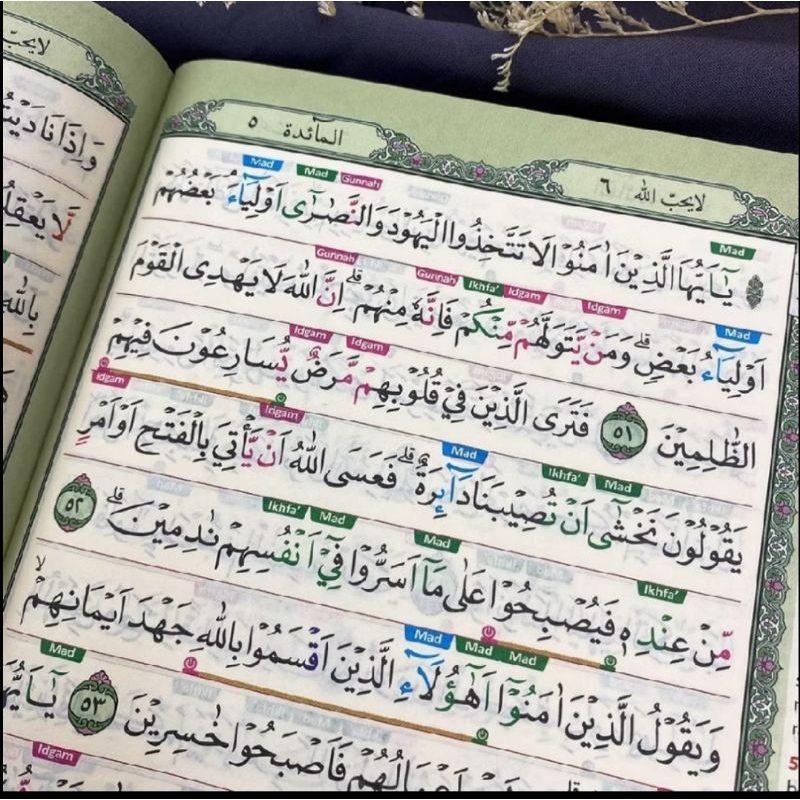 لا يحبّ الله ٦
المآئدة ٥
Mad Gunnah Mad Mad
يٰٓاَيُّهَا الَّذِيْنَ اٰمَنُوْا لَا تَتَّخِذُوا الْيَهُوْدَ وَالنَّصٰرٰٓى اَوْلِيَاۤءَ ۘ بَعْضُهُمْ
Mad Idgam Idgam Ikhfa' Gunnah Gunnah
اَوْلِيَاۤءُ بَعْضٍۗ وَمَنْ يَّتَوَلَّهُمْ مِّنْكُمْ فَاِنَّهٗ مِنْهُمْ ۗ اِنَّ اللّٰهَ لَا يَهْدِى الْقَوْمَ
Idgam Idgam
الظّٰلِمِيْنَ ٥١ فَتَرَى الَّذِيْنَ فِيْ قُلُوْبِهِمْ مَّرَضٌ يُّسَارِعُوْنَ فِيْهِمْ
Mad Ikhfa' Mad Idgam Idgam
يَقُوْلُوْنَ نَخْشٰٓى اَنْ تُصِيْبَنَا دَاۤىِٕرَةٌ ۗفَعَسَى اللّٰهُ اَنْ يَّأْتِيَ بِالْفَتْحِ اَوْ اَمْرٍ
Ikhfa' Mad Mad Ikhfa'
مِّنْ عِنْدِهٖ فَيُصْبِحُوْا عَلٰى مَآ اَسَرُّوْا فِيْٓ اَنْفُسِهِمْ نٰدِمِيْنَۗ ٥٢
Mad Mad Mad
وَيَقُوْلُ الَّذِيْنَ اٰمَنُوْٓا اَهٰٓؤُلَاۤءِ الَّذِيْنَ اَقْسَمُوْا بِاللّٰهِ جَهْدَ اَيْمَانِهِمْۙ
Mad
فَاَصْبَحُوْا خٰسِرِيْنَ ٥٣
Idgam
لا يحبّ
وَاِذَا نَادَيْتُ
لَّا يَعْقِلُ
بِاللّٰهِ